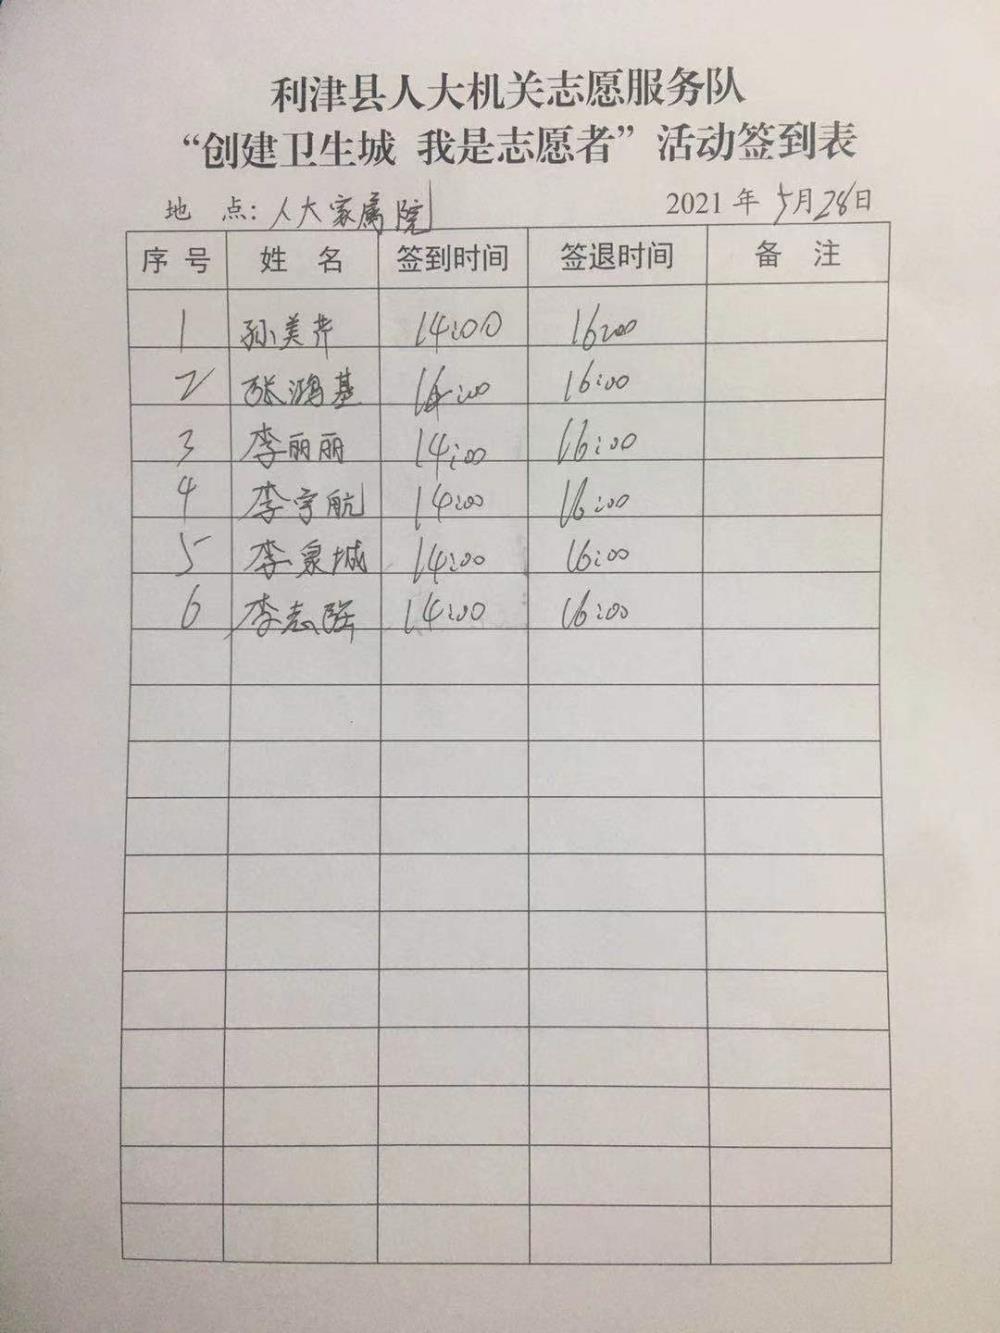 利津县人大机关志愿服务队
“创建卫生城 我是志愿者”活动签到表
地 点：人大家属院 2021 年 5月28日
序 号 姓 名 签到时间 签退时间 备 注
1 孙美芹 14:00 16:00
2 张鸿基 14:00 16:00
3 李丽丽 14:00 16:00
4 李宇航 14:00 16:00
5 李泉城 14:00 16:00
6 李志强 14:00 16:00